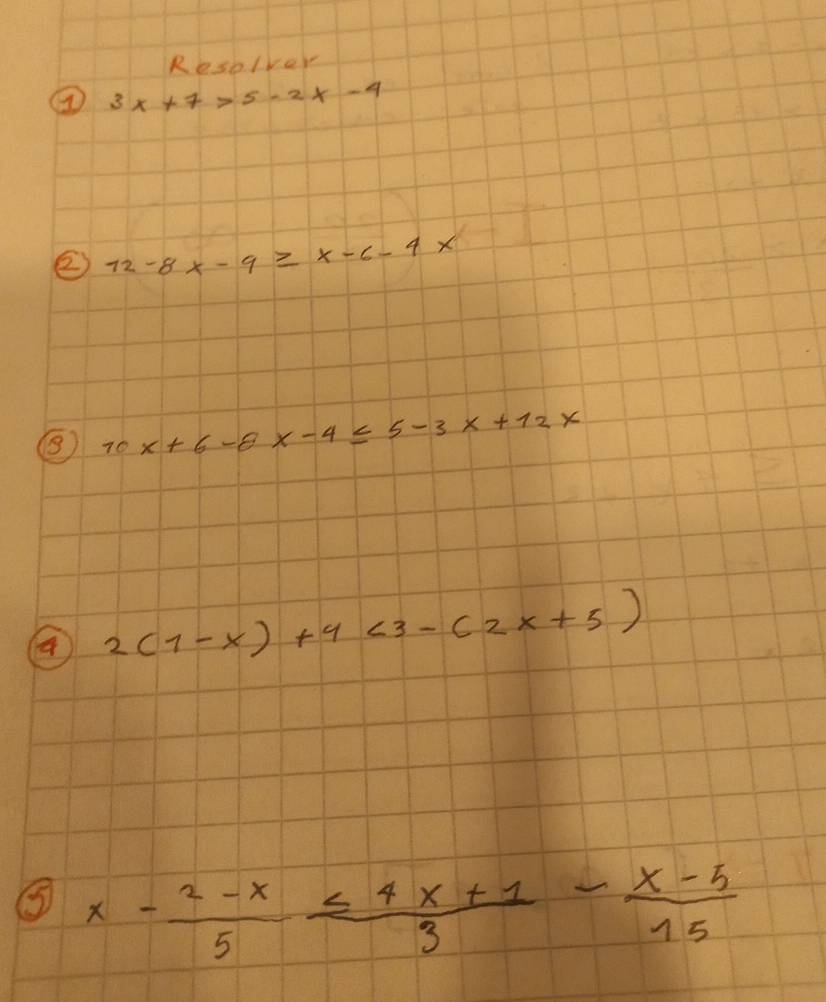 Resolver
① 3x + 7 > 5 - 2x - 4
② 12 - 8x - 9 ≥ x - 6 - 4x
③ 10x + 6 - 8x - 4 ≤ 5 - 3x + 12x
④ 2(1 - x) + 4 < 3 - (2x + 5)
⑤ x - (2 - x)/5 ≤ (4x + 1)/3 - (x - 5)/15